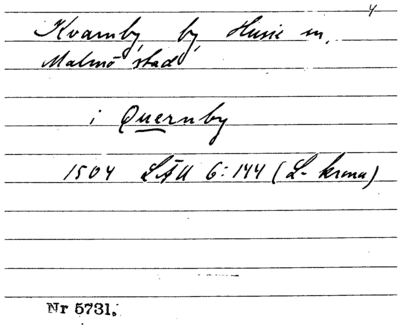 4
Kvarnby, by, Husie sn,
Malmö stad
i Quernby
1504 LÄU 6:144 (L-krona)
Nr 5731.